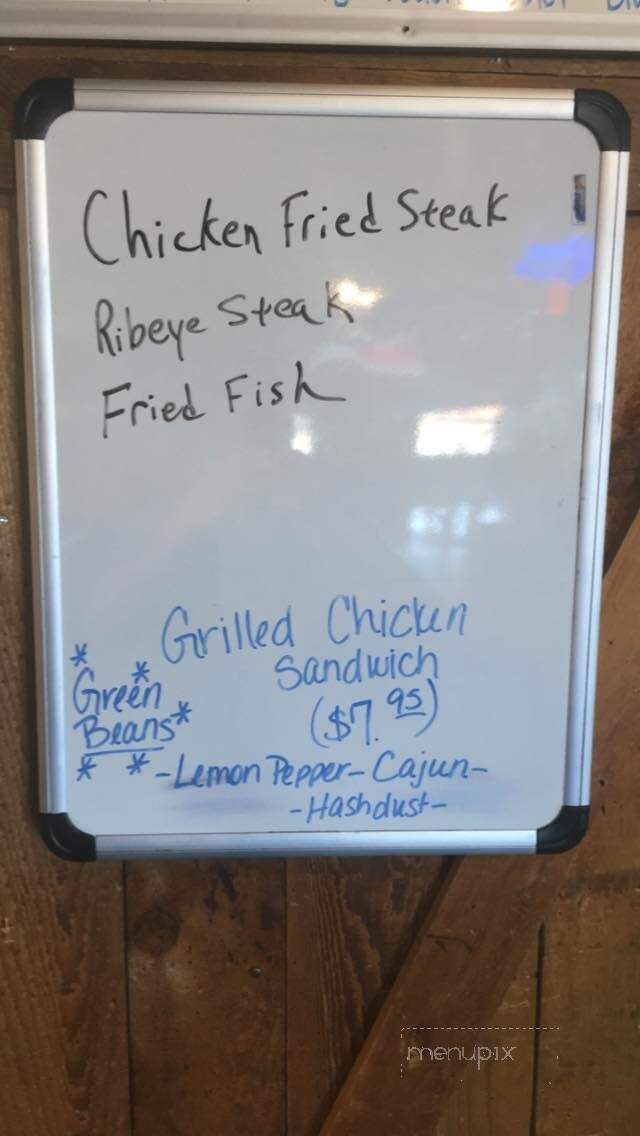 Chicken Fried Steak
Ribeye Steak
Fried Fish
Grilled Chicken
Sandwich
($7.95)
* Green *
Beans*
* *
-Lemon Pepper-Cajun-
-Hashdust-
menupix